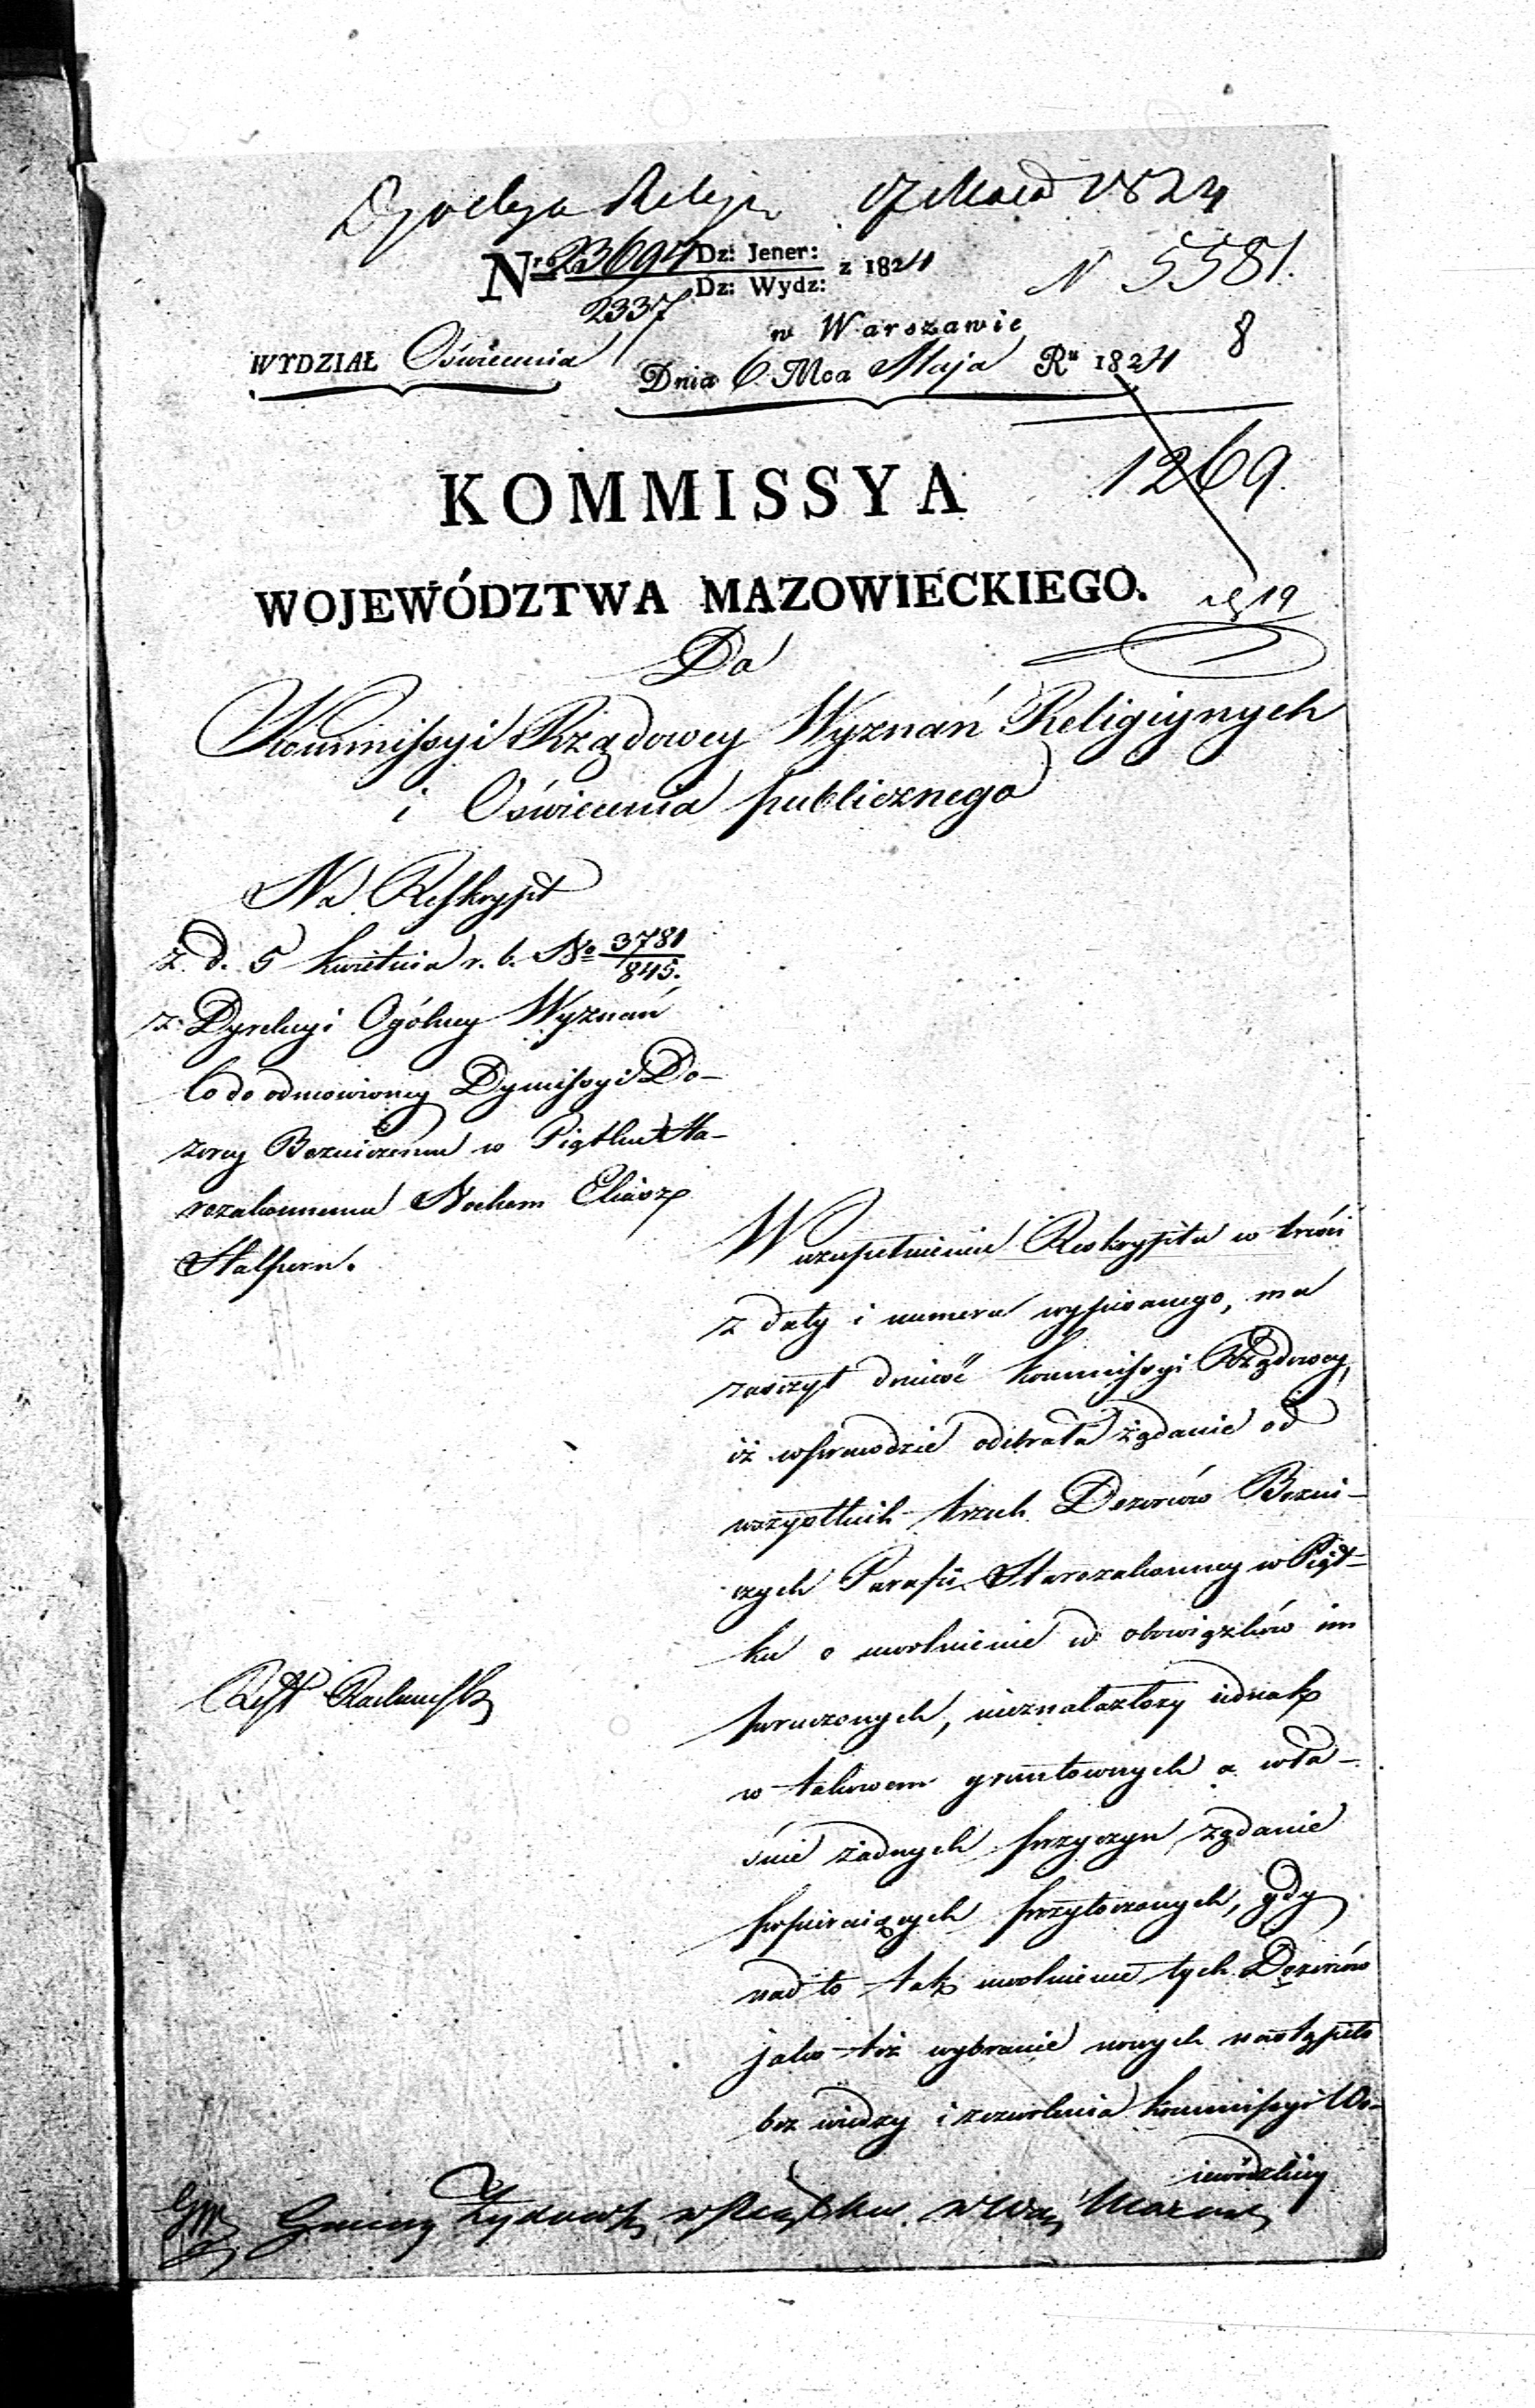 17 Maia 1824
Nro 23694 Dz: Jener: z 1824
2337 Dz: Wydz:
N 5581.
w Warszawie
8
WYDZIAŁ Oświecenia
Dnia 6 Mca Maja Ru 1824
1269.
KOMMISSYA
WOJEWÓDZTWA MAZOWIECKIEGO.
19
Do
Kommissyi Rządowey Wyznań Religiynych
i Oświecenia publicznego
Na Reskrypt
z d. 5 Kwietnia r. b. No 3781
845.
z Dyrekcyi Ogólney Wyznań
Co do odmowioney Dymissyi Do-
zorcy Bożniczemu w Piątku Sta-
rozakonnemu Nochem Eliasz
Halpern.
W uzupełnieniu Reskryptu w treści
z daty i numeru wypisanego, ma
zaszczyt donieść Kommissyi Rządowey,
iż wprawdzie odebrała żądanie od
wszystkich trzech Dozorców Bożni-
czych Parafii Starozakonney w Piąt-
ku o uwolnienie od obowiązków im
poruczonych, nieznalazłszy iednak
w takowem gruntownych a wła-
śnie żadnych przyczyn żądanie
popieraiących przytoczonych, gdy
nad to tak uwolnienie tych Dozorców
jako też wybranie nowych nastąpiło
bez wiedzy i zezwolenia Kommissyi Wo-
iewódzkiey
Gminy Żydowsk w Piątku. w Woj Mazow